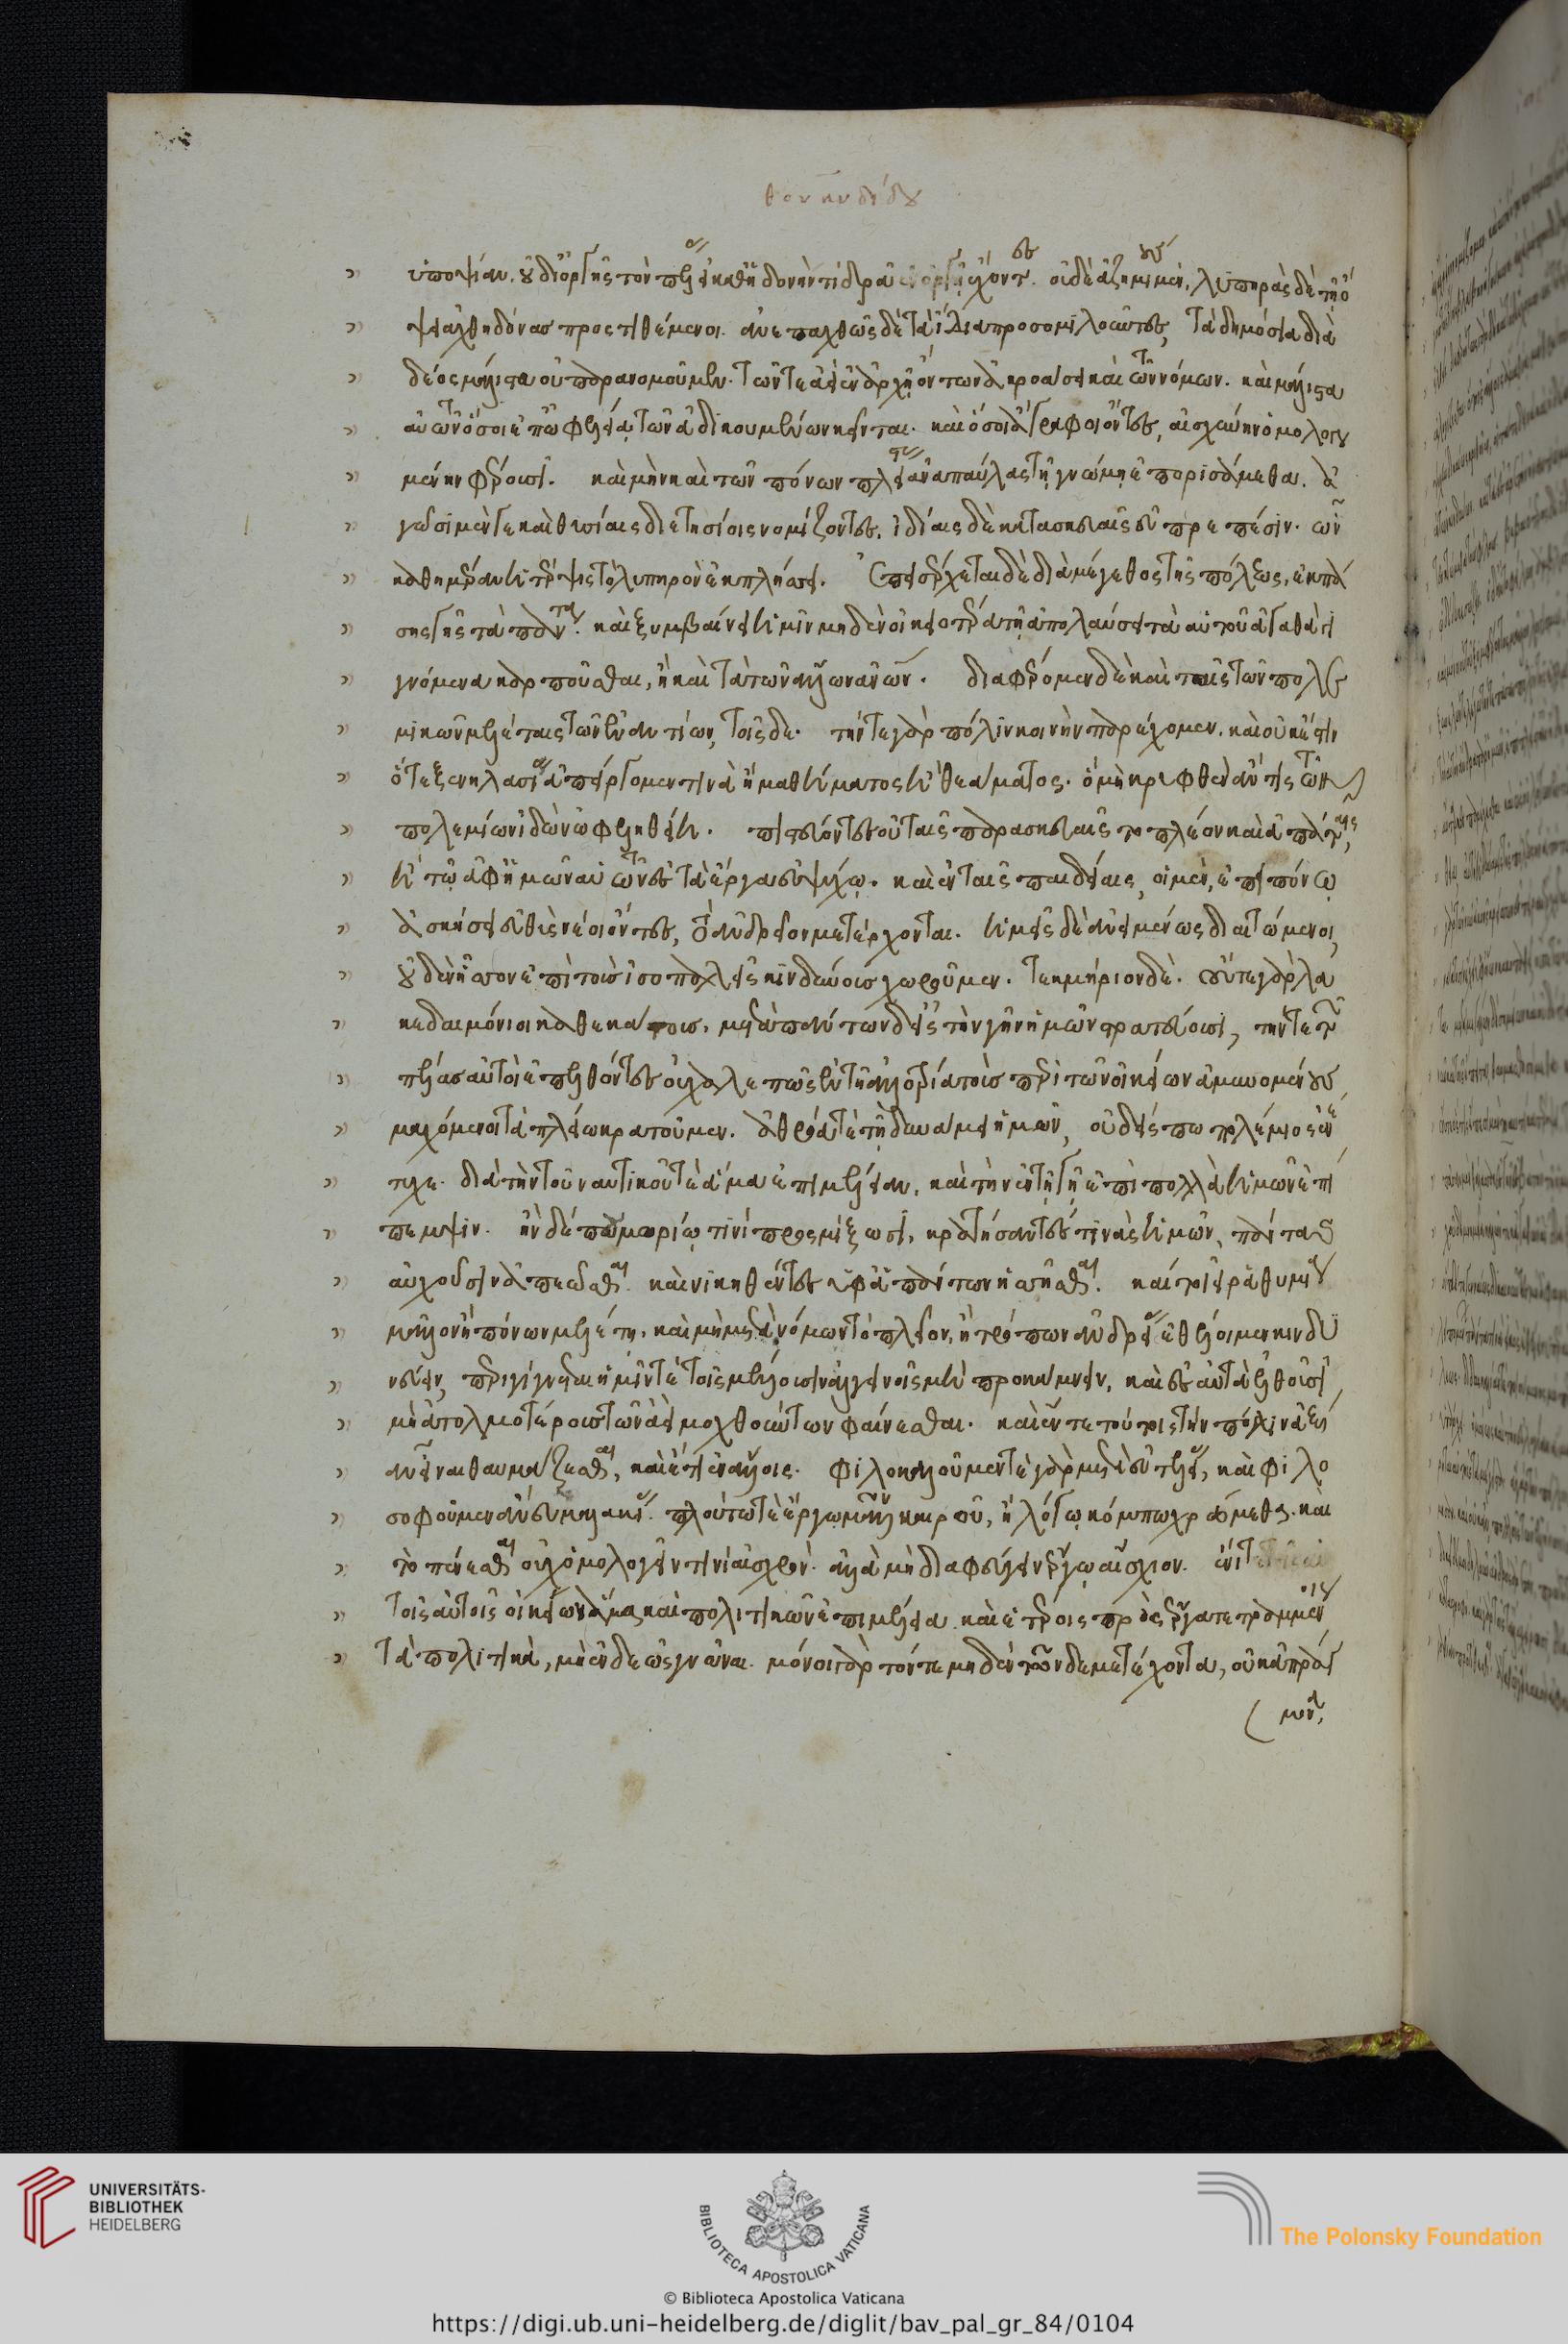 θουκυδίδου
ὑποψίαν. οὐ δι' ὀργῆς τὸν πέλας εἰ καθ' ἡδονήν τι δρᾷ ἐν ὀργῇ ἔχοντες. οἱ δὲ ἀζημίους μὲν, λυπηρὰς δὲ τῇ ὄ
ψει ἀχθηδόνας προστιθέμενοι. ἀνεπαχθῶς δὲ τὰ ἴδια προσομιλοῦντες, τὰ δημόσια διὰ
δέος μάλιστα οὐ παρανομοῦμεν. τῶν τε ἀεὶ ἐν ἀρχῇ ὄντων ἀκροάσει καὶ τῶν νόμων. καὶ μάλιστα
αὐτῶν ὅσοι ἐπ' ὠφελείᾳ τῶν ἀδικουμένων κεῖνται. καὶ ὅσοι ἄγραφοι ὄντες, αἰσχύνην ὁμολογου
μένην φέρουσι. καὶ μὴν καὶ τῶν πόνων πλείστας ἀναπαύλας τῇ γνώμῃ ἐπορισάμεθα. ἀ
γῶσι μέν γε καὶ θυσίαις διετησίοις νομίζοντες. ἰδίαις δὲ κατασκευαῖς εὐπρεπέσιν. ὧν
καθημέραν ἡ τέρψις τὸ λυπηρὸν ἐκπλήσσει. Ἐπεισέρχεται δὲ διὰ μέγεθος τῆς πόλεως, ἐκ πά
σης γῆς τὰ πάντα. καὶ ξυμβαίνει ἡμῖν μηδὲν οἰκειοτέρᾳ τῇ ἀπολαύσει τὰ αὐτοῦ ἀγαθὰ γι
γνόμενα καρποῦσθαι, ἢ καὶ τὰ τῶν ἄλλων ἀνῶν. διαφέρομεν δὲ καὶ ταῖς τῶν πολε
μικῶν μελέταις τῶν ἐναντίων, τοῖςδε. τήν τε γὰρ πόλιν κοινὴν παρέχομεν. καὶ οὐκ ἔστιν
ὅτε ξενηλασίαις ἀπείργομεν τινὰ ἢ μαθήματος ἢ θεάματος. ὃ μὴ κρυφθὲν ἄν τις τῶν
πολεμίων ἰδὼν ὠφεληθείη. πιστεύοντες οὐ ταῖς παρασκευαῖς το πλέον καὶ ἀπάταις,
ἢ τῷ ἀφ' ἡμῶν αὐτῶν ἐς τὰ ἔργα εὐψύχῳ. καὶ ἐν ταῖς παιδείαις, οἱ μὲν, ἐπιπόνῳ
ἀσκήσει εὐθὺς νέοι ὄντες, τὸ ἀνδρεῖον μετέρχονται. ἡμεῖς δὲ ἀνειμένως διαιτώμενοι,
οὐδὲν ἧσσον ἐπὶ τοὺς ἰσοπαλεῖς κινδύνους χωροῦμεν. τεκμήριον δὲ. οὔτε γὰρ λα
κεδαιμόνιοι καθ' ἑκάστους, μετὰ πάντων δ' ἐς τὴν γῆν ἡμῶν στρατεύουσι, τήν τε τῶν
πέλας αὐτοὶ ἐπελθόντες οὐ χαλεπῶς ἐν τῇ ἀλλοτρίᾳ τοὺς περὶ τῶν οἰκείων ἀμυνομένους
μαχόμενοι τὰ πλείω κρατοῦμεν. ἀθρόᾳ τε τῇ δυνάμει ἡμῶν, οὐδείς πω πολέμιος ἐνέ
τυχε. διὰ τὴν τοῦ ναυτικοῦ τε ἅμα ἐπιμέλειαν, καὶ τὴν ἐν τῇ γῇ ἐπὶ πολλὰ ἡμῶν ἐπί
πεμψιν. ἢν δέ που μορίῳ τινὶ προςμίξωσι, κρατήσαντές τινὰς ἡμῶν, πάντας
αὐχοῦσιν ἀπεῶσθαι καὶ νικηθέντες ὑφ' ἁπάντων ἡσσῆσθαι. καίτοι εἰ ῥαθυμίᾳ
μᾶλλον ἢ πόνων μελέτῃ, καὶ μὴ μετὰ νόμων τὸ πλεῖον, ἢ τρόπων ἀνδρείας ἐθέλοιμεν κινδυ
νεύειν, περιγίγνεται ἡμῖν τέ τοῖς μέλλουσιν ἀλγεινοῖς μὴ προκάμνειν, καὶ ἐς αὐτὰ ἐλθοῦσι
μὴ ἀτολμοτέρους τῶν ἀεὶ μοχθούντων φαίνεσθαι. καὶ ἔν τε τούτοις τὴν πόλιν ἀξίαν
εἶναι θαυμάζεσθαι, καὶ ἔτι ἐν ἄλλοις. φιλοκαλοῦμέν τε γὰρ μετ' εὐτελείας, καὶ φιλο
σοφοῦμεν ἄνευ μαλακίας. πλούτῳ τε ἔργῳ μᾶλλον καιρῷ, ἢ λόγῳ κόμπῳ χρώμεθα. καὶ
τὸ πένεσθαι οὐχ ὁμολογεῖν τινὶ αἰσχρὸν. ἀλλὰ μὴ διαφεύγειν ἔργῳ αἴσχιον. ἔνι τε
τοῖς αὐτοῖς οἰκείων ἅμα καὶ πολιτικῶν ἐπιμέλεια. καὶ ἑτέροις πρὸς ἔργα τετραμμένοις
τὰ πολιτικὰ, μὴ ἐνδεῶς γνῶναι. μόνοι γὰρ τόν τε μηδὲν τῶνδε μετέχοντα, οὐκ ἀπράγ
μονα,
UNIVERSITÄTS-
BIBLIOTHEK
HEIDELBERG
BIBLIOTECA APOSTOLICA VATICANA
The Polonsky Foundation
© Biblioteca Apostolica Vaticana
https://digi.ub.uni-heidelberg.de/diglit/bav_pal_gr_84/0104